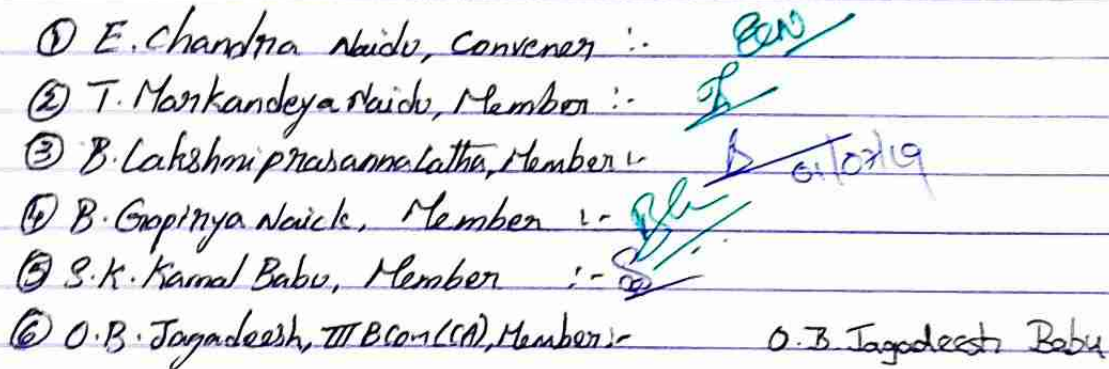 ① E. Chandra Naidu, Convener :-
② T. Markandeya Naidu, Member :-
③ B. Lakshmiprasannalatha, Member :- 01/07/19
④ B. Gopirya Naick, Member :-
⑤ S.K. Kamal Babu, Member :-
⑥ O.B. Jagadeesh, III BCom (CA), Member :- O.B. Jagadeesh Babu